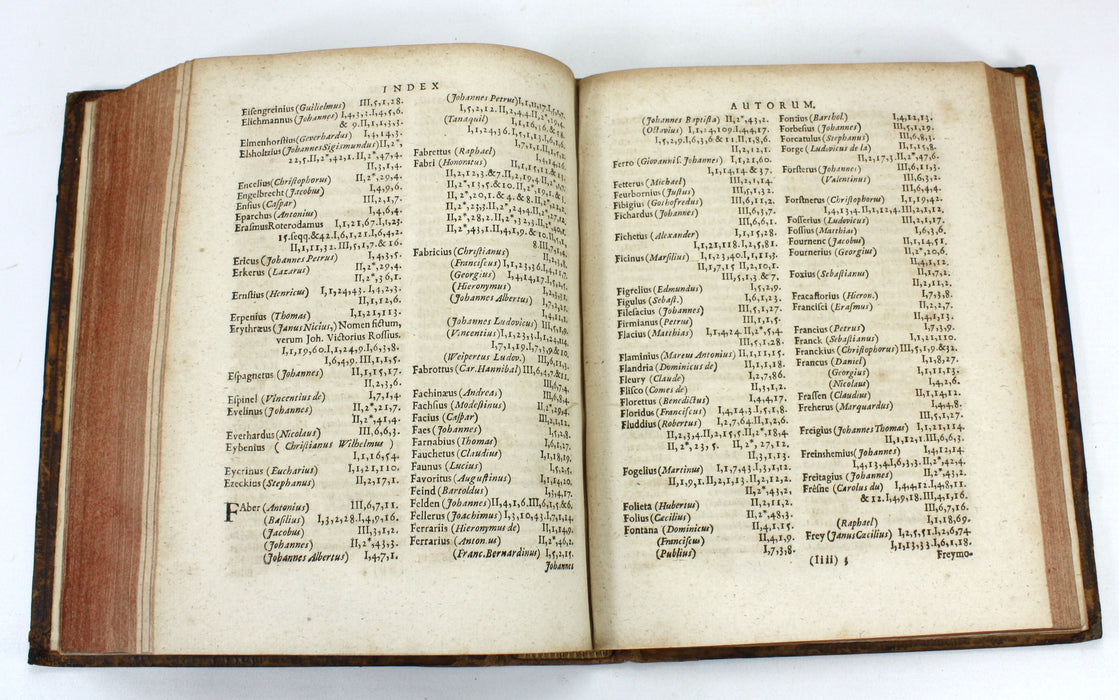 INDEX
Eisengreinius (Guilielmus) III,5,1,28.
Elichmannus (Johannes) I,4,3,2.I,4,5,6.
& 9.II,1,1,3,3.
Elmenhorstius (Geverhardus) I,4,14,3.
Elsholtzius (Johannes Sigismundus) II,2*,
22,5.II,2*,42,1.II,2*,47,4.
II,3,1,4.
Encelius (Christophorus) II,2*,29,4.
Engelbrecht (Jacobus) I,4,9,6.
Ensius (Caspar) III,2,1,7.
Eparchus (Antonius) I,4,6,4.
Erasmus Roterodamus I,1,21,67.I,1,23.
15.seqq.&42.I,6,1,21.I,6,4,2.
II,1,11,32.III,5,1,7.& 16.
Ericus (Johannes Petrus) I,4,3,5.
Erkerus (Lazarus) II,2*,29,4.
II,2*,36,1.
Ernstius (Henricus) I,1,24,43.I,4,2,3.
II,1,12,6.
Erpenius (Thomas) I,1,21,113.
Erythræus (Janus Nicius,) Nomen fictum,
verum Joh. Victorius Rossius.
I,1,19,60.I,1,24,9.I,6,3,8.
I,6,4,9.III,1,1,5.
Espagnetus (Johannes) II,1,15,17.
II,2,3,6.
Espinel (Vincentius de) I,7,1,4.
Evelinus (Johannes) II,2*,21,7.
II,2*,41,4.
Everhardus (Nicolaus) III,6,6,3.
Eybenius (Christianus Wilhelmus)
I,1,16,54.
Eyerinus (Eucharius) I,1,21,110.
Ezeckius (Stephanus) II,2,17,1.
FAber (Antonius) III,6,7,11.
(Basilius) I,3,2,28.I,4,9,16.
(Jacobus) III,3,1,2.
(Johannes) II,2*,43,3.
(Johannes Albertus) I,4,7,1.
(Johannes Petrus)
(Tanaquil)
I,1,24,36.I,5,1,13.I,6,1,6.
Fabrettus (Raphael) I,4,14,16.
Fabri (Honoratus)
Fabricius (Christianus)
(Franciscus) I,1,23,36.I,4,11,7.
(Georgius) I,4,14,17.I,5,2,5.
(Hieronymus)
(Johannes Albertus) I,7,2,25.
(Johannes Ludovicus) III,5,1,9.
(Vincentius) I,1,23,3.I,1,24,114.
I,7,1,19.I,7,3,9.& 10.
(Weipertus Ludov.) III,6,11,3.
Fabrottus (Car. Hannibal) III,6,4,7.&11.
III,6,7,4.
Fachinæus (Andreas) III,6,8,4.
Fachsius (Modestinus) II,2*,29,4.
Facius (Caspar) III,2,1,12.
Faes (Johannes) I,5,2,8.
Farnabius (Thomas) I,6,1,27.
Fauchetus (Claudius) I,1,18,19.
Faunus (Lucius) I,5,2,5.
Favoritus (Augustinus) I,1,14,20.
Feind (Bartoldus) I,3,4,17.
Felden (Johannes) II,4,1,6.III,6,1,5.&6.
Fellerus (Joachimus) I,3,10,43.I,7,1,24.
Ferrariis (Hieronymus de) II,1,14,9.
Ferrarius (Antonius) II,2*,46,2.
(Franc. Bernardinus) I,5,2,15.
Johannes
AUTORUM.
(Johannes Baptista) II,2*,43,2.
(Octavius) I,1,14,109.I,4,4,17.
I,5,2,9.I,6,3,6.& 11.II,1,8,6.
II,2,12,1.
Ferro (Giovanni f. Johannes) I,1,21,60.
I,1,14,14.& 37.
Fetterus (Michael) III,2,1,14.
Feurbornius (Justus) III,5,1,32.
Fibigius (Gothofredus) III,6,11,2.
Fichardus (Johannes) III,6,3,7.
III,6,6,1.
Fichetus (Alexander) I,1,15,28.
I,1,21,118.I,2,5,81.
Ficinus (Marsilius) I,1,23,40.I,1,11,3.
II,1,7,15.II,2,10,1.
III,5,1,3.& 7.
Figfelius (Edmundus) I,5,2,9.
Figulus (Sebast.) I,6,1,23.
Filesacius (Johannes) III,5,1,27.
Firmianus (Petrus) III,1,1,5.
Flacius (Matthias) I,1,4,24.II,2*,5,4.
III,5,1,28.
Flaminius (Marcus Antonius) II,1,11,15.
Flandria (Dominicus de) II,1,1,18.
Fleury (Claude) I,2,7,86.
Flisco (Comes de) II,3,1,2.
Florettus (Benedictus) I,4,4,17.
Floridus (Franciscus) I,4,14,3.I,5,1,8.
Fluddius (Robertus) I,2,7,64.II,1,2,6.
II,2,3,4.II,2,15,5.II,2*,18,4
II,2*,23,5. II,2*,27,12.
II,3,1,13.
Fogelius (Martinus) I,1,7,43.I,3,1,12.
II,1,9,1.II,2,1,13.II,2,12,2.
II,2*,43,2,
Folieta (Hubertus) II,2,11,2.
Folius (Cæcilius) II,2*,48,3.
Fontana (Dominicus) II,4,1,15.
(Franciscus) II,4,1,9.
(Publius) I,7,3,8.
Fontius (Barthol.) I,4,12,13.
Forbesius (Johannes) III,5,1,29.
Forcatulus (Stephanus) III,6,8,3.
Forge (Ludovicus de la) II,1,15,8.
II,2,17,3.II,2*,47,6.
Forsterus (Johannes) III,6,1,3.
(Valentinus) III,6,3,2.
III,6,4,4.
Forstnerus (Christophorus) I,1,19,42.
I,4,13,4.II,1,12,4.III,2,1,12.
Fosserius (Ludovicus) III,2,1,17.
Fossius (Matthias) I,6,3,6.
Fournenc (Jacobus) II,1,14,51.
Fournerius (Georgius) II,2*,20,6.
II,4,1,12.
Foxius (Sebastianus) II,1,7,2.
II,2,11,2.
Fracastorius (Hieron.) I,7,3,8.
Francisci (Erasmus) II,2,2,7.
II,4,1,13.
Francius (Petrus) I,7,3,9.
Franck (Sebastianus) I,1,21,110.
Franckius (Christophorus) III,5,1,9.&32.
Francus (Daniel) I,1,8,27.
(Georgius) I,1,11,13.
(Nicolaus) I,4,2,6.
Frassen (Claudius) II,1,14,12.
Freherus (Marquardus) I,4,4,8.
III,5,1,27.
Freigius (Johannes Thomas) I,1,21,114.
II,1,12,1.III,6,6,3.
Freinshemius (Johannes) I,4,12,14.
I,4,13,4.I,6,3,3.II,2*,42,4.
Freitagius (Johannes) II,2*,43,2.
Frésne (Carolus du) I,4,4,12.I,4,8,11.
& 12.I,4,9,18.III,4,1,16.
III,6,7,16.
(Raphael) I,1,18,69.
Frey (Janus Cæcilius) I,2,5,51.I,2,6,74.
I,1,13,33.I,6,1,18.
(Iiii) 3
Freymo-